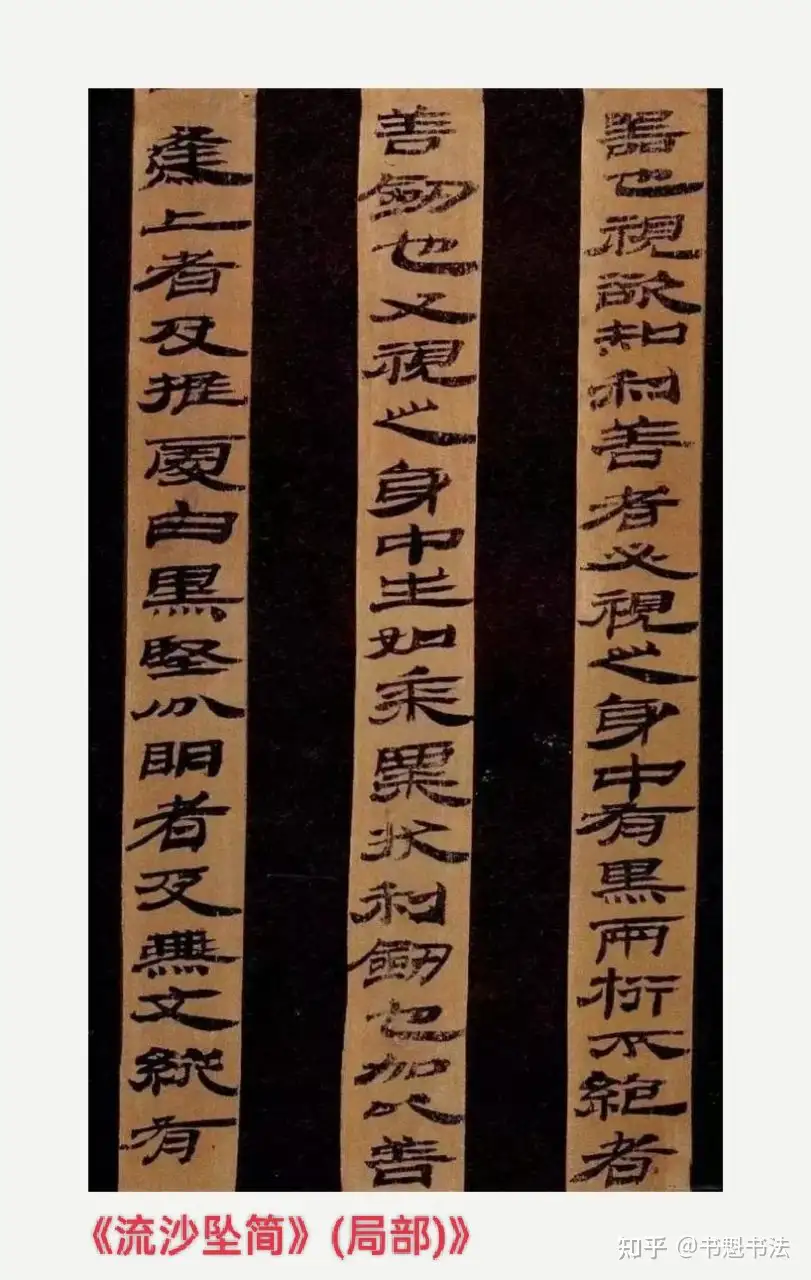 器也視欲知利善者必視之身中有黑兩桁不絕者
善劒也又視之身中生如黍粟状利劒也加以善
逢上者及推處白黑堅分明者及無文縱有
《流沙坠简》(局部)》
知乎 @书魁书法